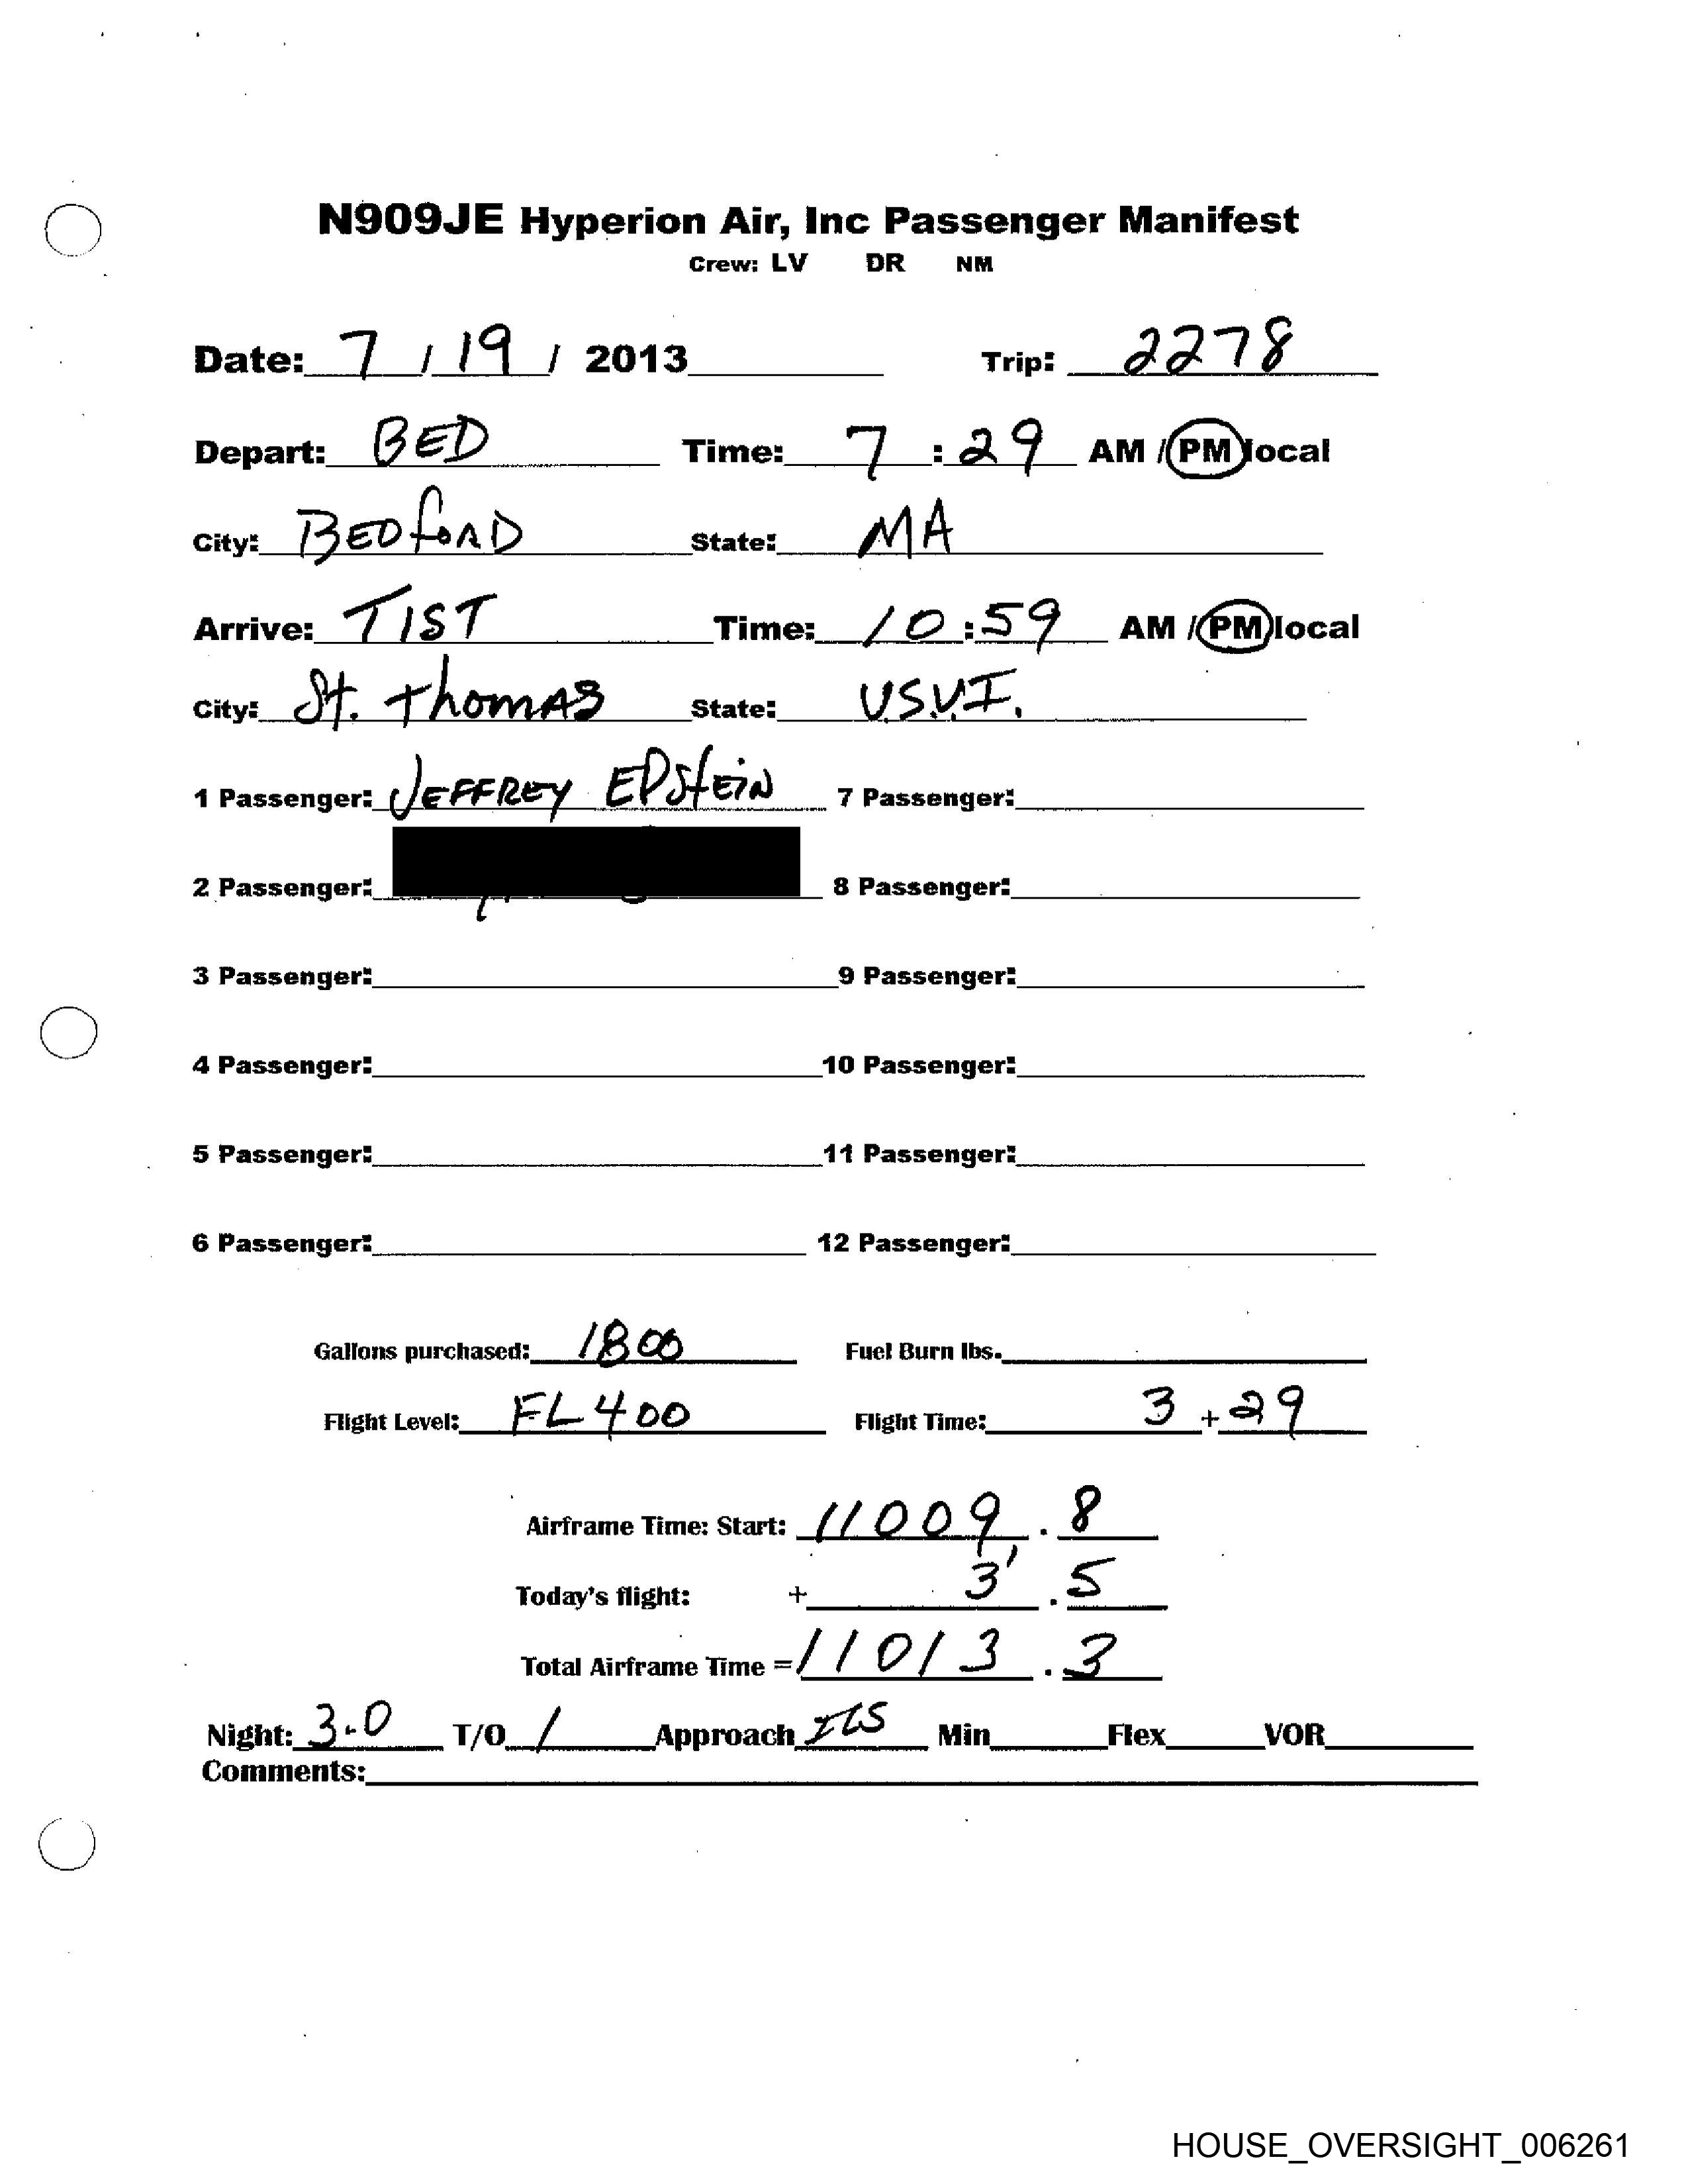 N909JE Hyperion Air, Inc Passenger Manifest
Crew: LV DR NM
Date: 7 / 19 / 2013 Trip: 2278
Depart: BED Time: 7 : 29 AM / PM local
City: BEDfORD State: MA
Arrive: TIST Time: 10 : 59 AM / PM local
City: St. Thomas State: U.S.V.I.
1 Passenger: JEFFREY EPStEiN 7 Passenger:
2 Passenger: 8 Passenger:
3 Passenger: 9 Passenger:
4 Passenger: 10 Passenger:
5 Passenger: 11 Passenger:
6 Passenger: 12 Passenger:
Gallons purchased: 1800 Fuel Burn lbs.
Flight Level: FL400 Flight Time: 3 + 29
Airframe Time: Start: 11009 . 8
Today's flight: + 3 . 5
Total Airframe Time = 11013 . 3
Night: 3.0 T/O 1 Approach ILS Min Flex VOR
Comments:
HOUSE_OVERSIGHT_006261